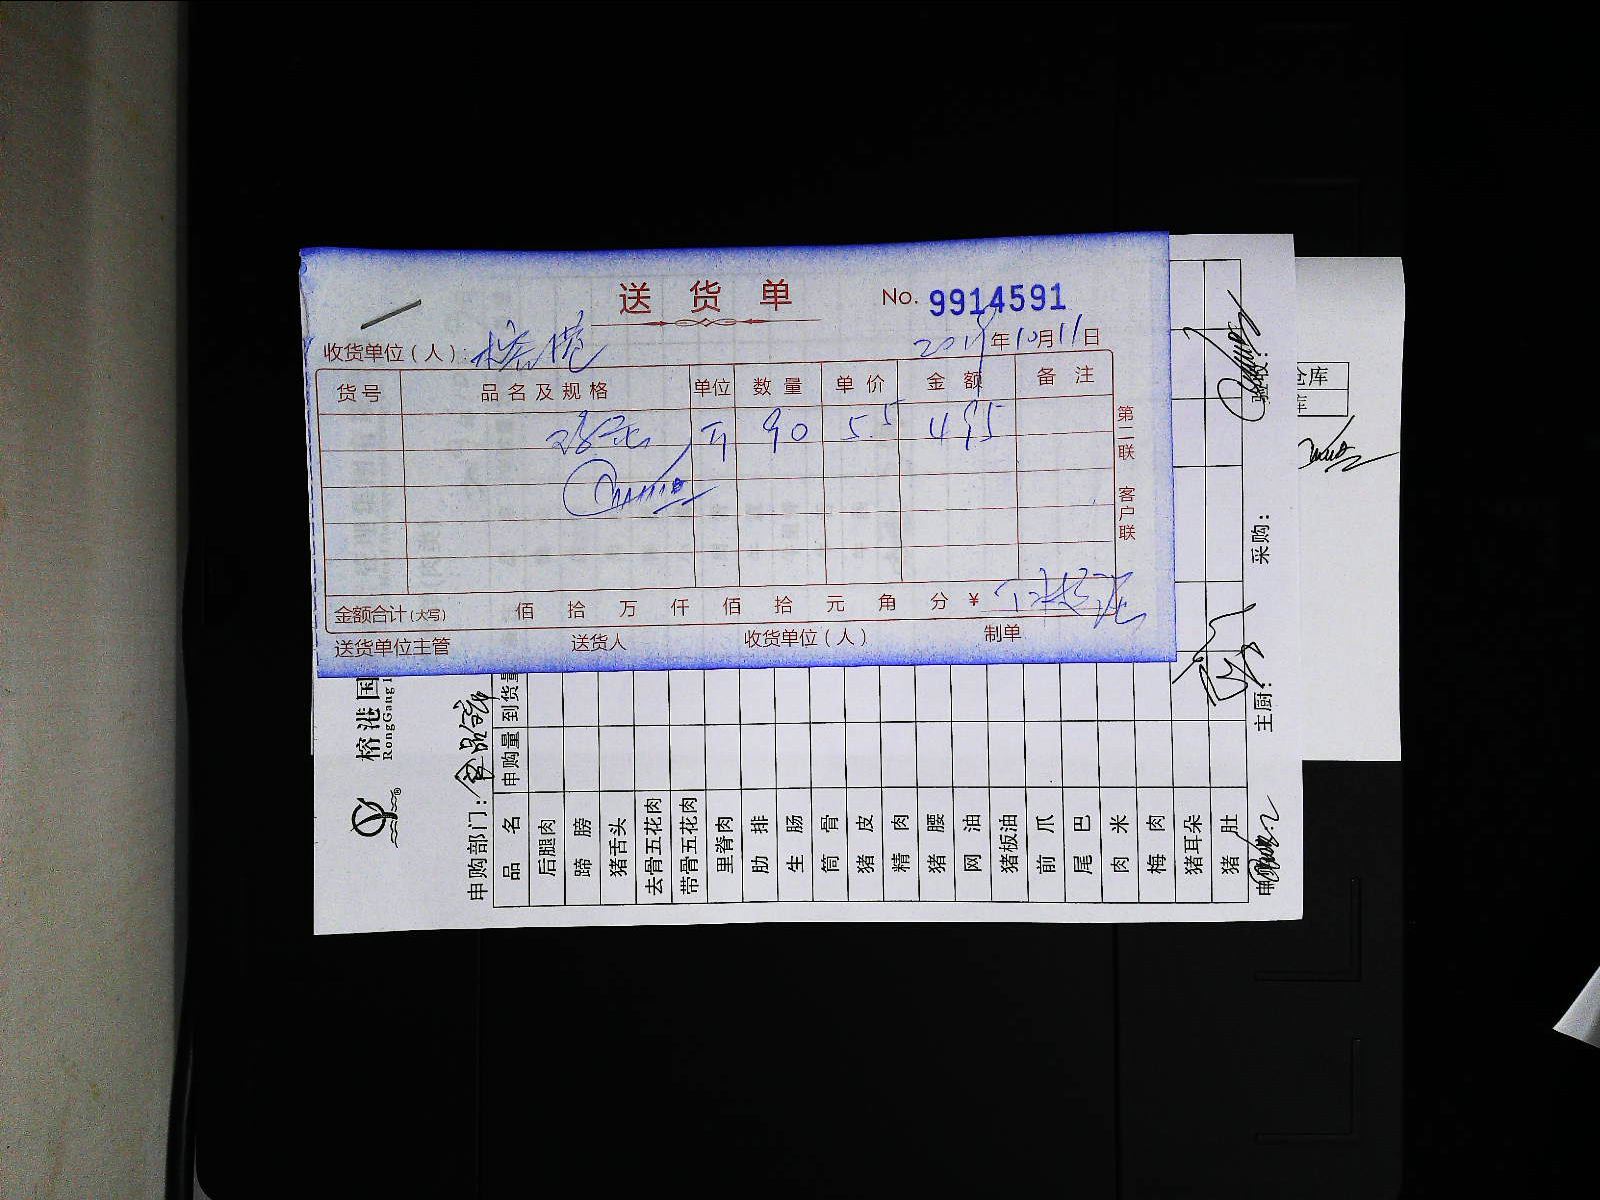 送货单
No. 9914591
收货单位（人）：榕港
2019年10月11日
货号 品名及规格 单位 数量 单价 金额 备注
斤 90 5.5 495
第二联 客户联
金额合计(大写) 佰 拾 万 仟 佰 拾 元 角 分 ¥
送货单位主管 送货人 收货单位（人） 制单
榕港国
RongGang I
申购部门：食品
品名 申购量 到货量
后腿肉
蹄膀
猪舌头
去骨五花肉
带骨五花肉
里脊肉
肋排
生肠
筒骨
猪皮
精肉
猪腰
网油
猪板油
前爪
尾巴
肉米
梅肉
猪耳朵
猪肚
主厨：
采购：
验收：
仓库
库